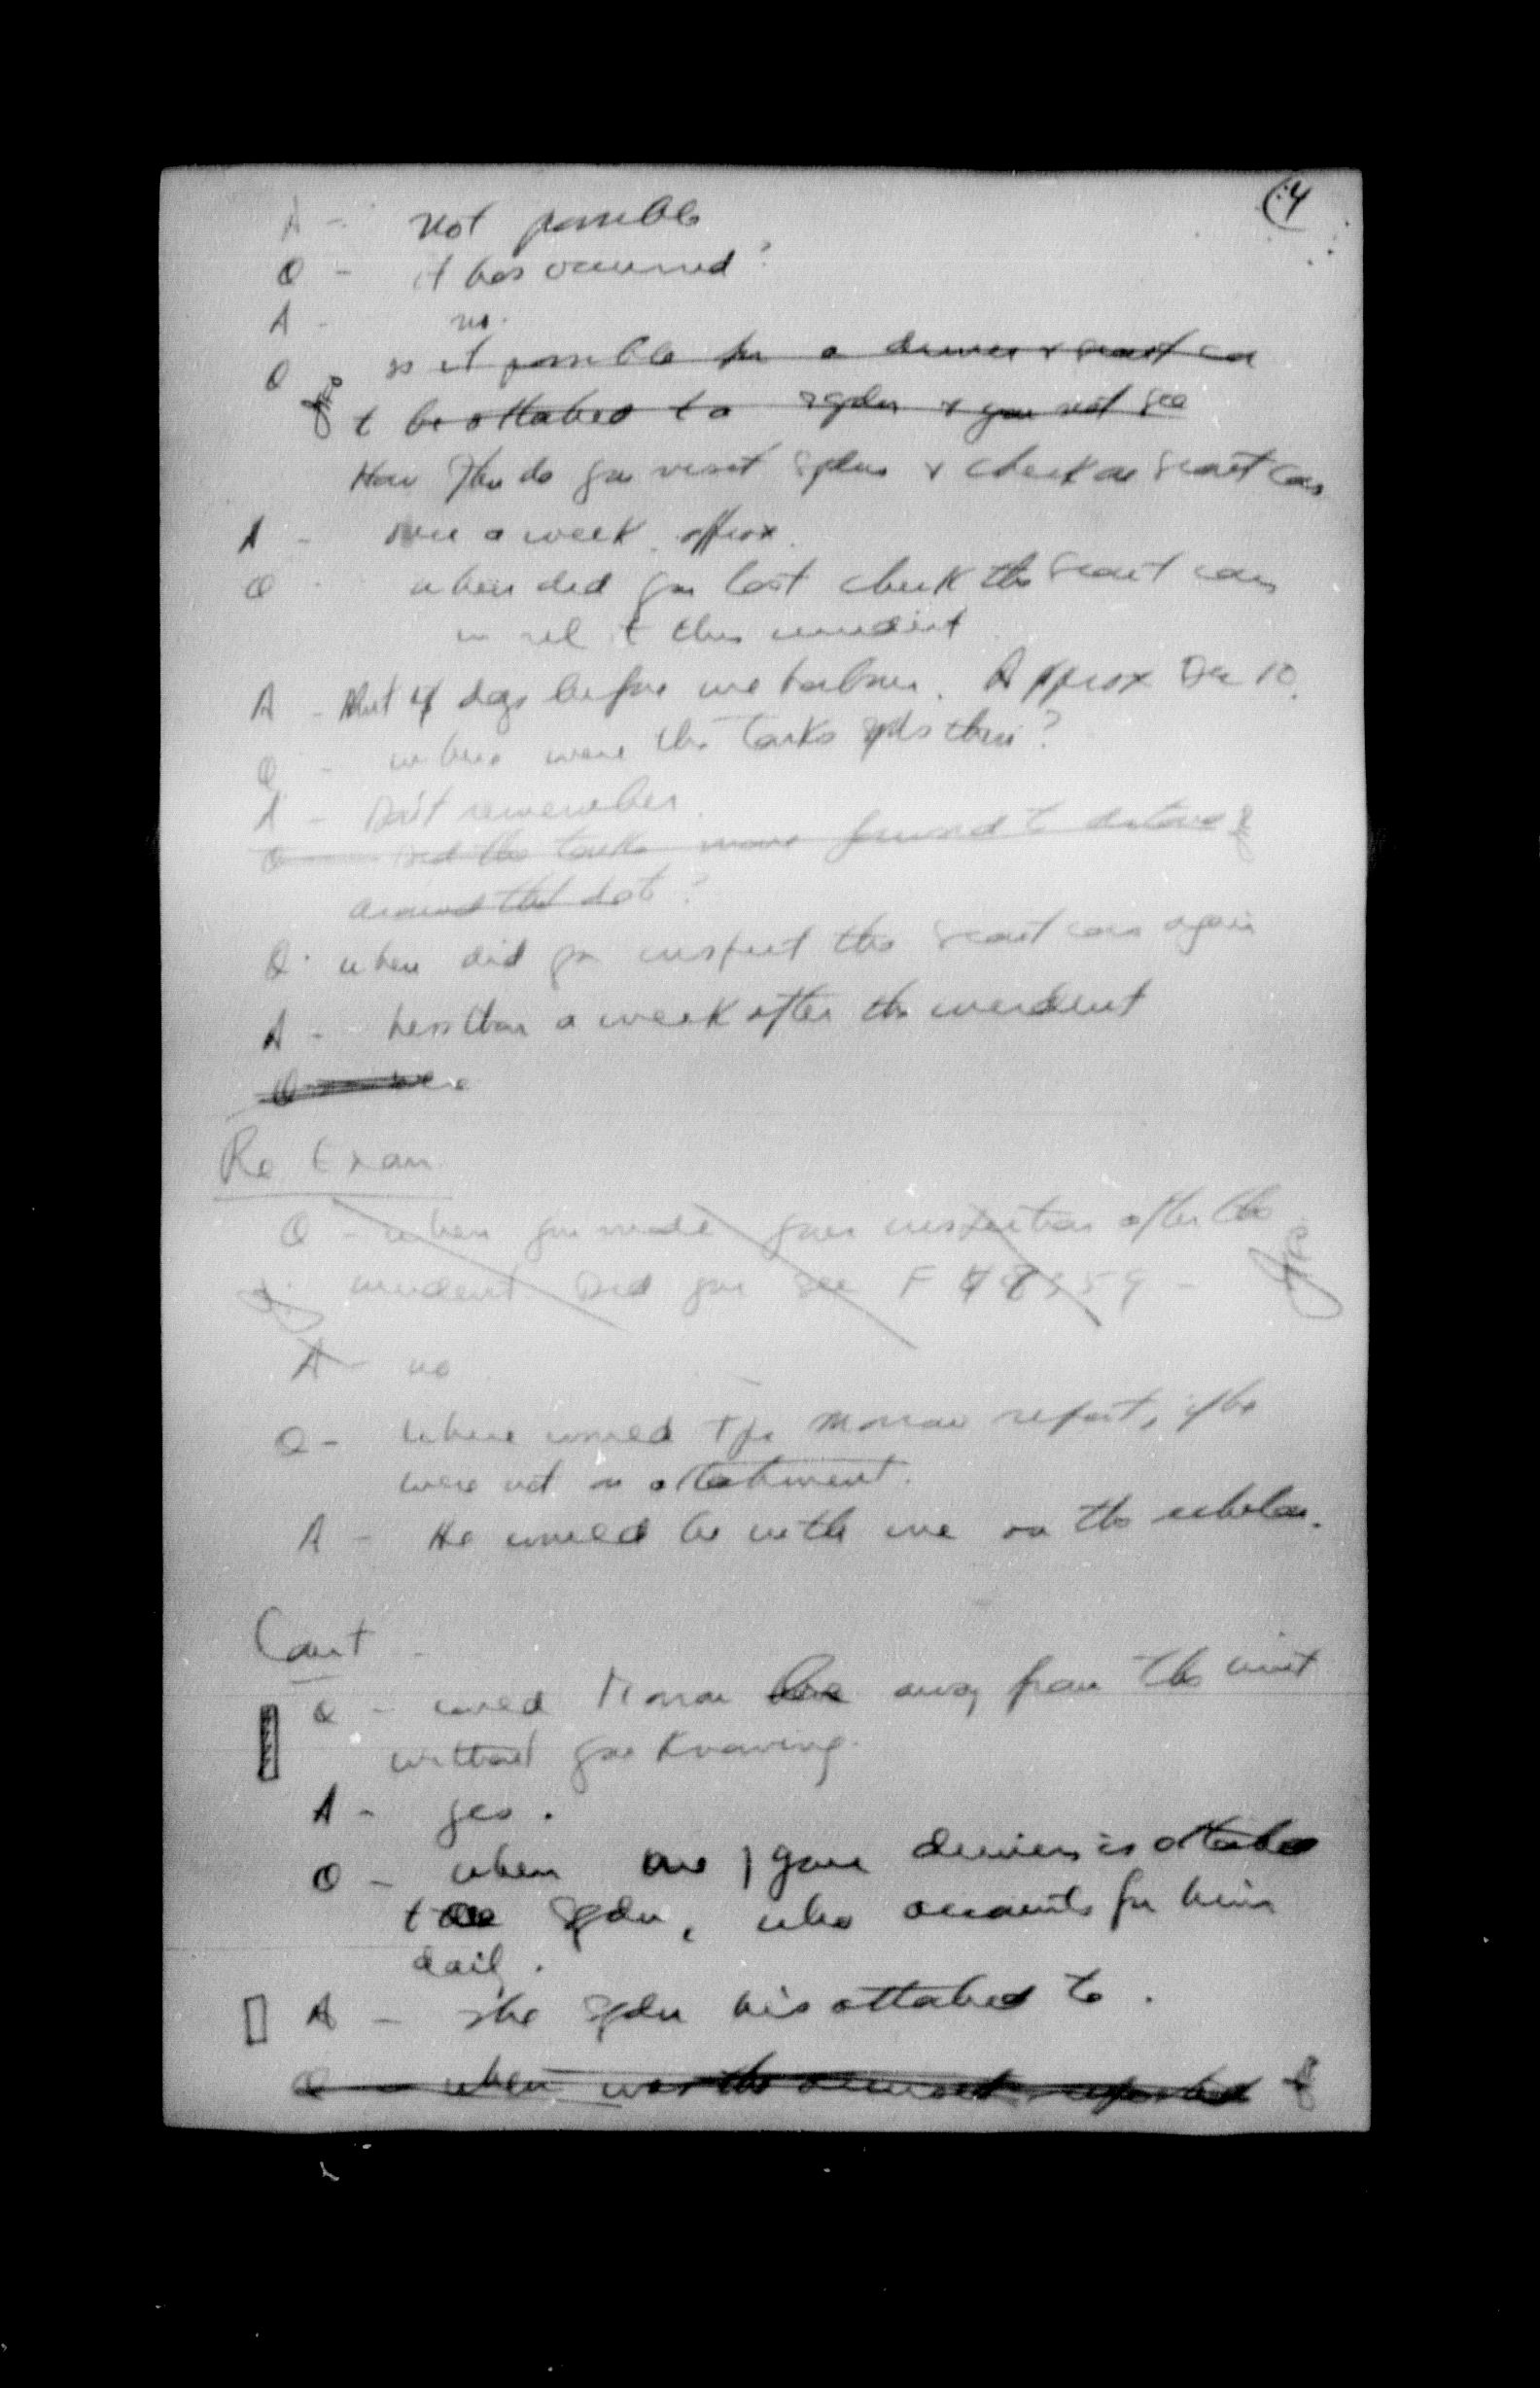 4
A - Not possible
Q - it has occurred?
A - no.
Q is it possible for a driver & scout car
t be attached to a sqdn & you not see
How often do you visit sqdns & check on scout cars
A - once a week approx.
Q when did you last check the scout cars
in rel t this incident
A - Abt 4 days before Approx Dec 10.
Q - where were the tanks then?
A - Don't remember.
Q Did the tanks move forward to
around that date?
Q. when did you inspect the scout cars again
A - Less than a week after the incident
Q
Re Exam
Q - when you made your inspection after the
incident Did you see F
A - no
Q - Where would Tpr Morrow report, if he
were not on attachment.
A - He would be with me on the echelon.
Court
Q - could Morrow be away from the unit
without you knowing.
A - yes.
Q - when one of your drivers is attached
to sqdn, who accounts for him
daily.
A - The sqdn he is attached to.
Q - when was the reported